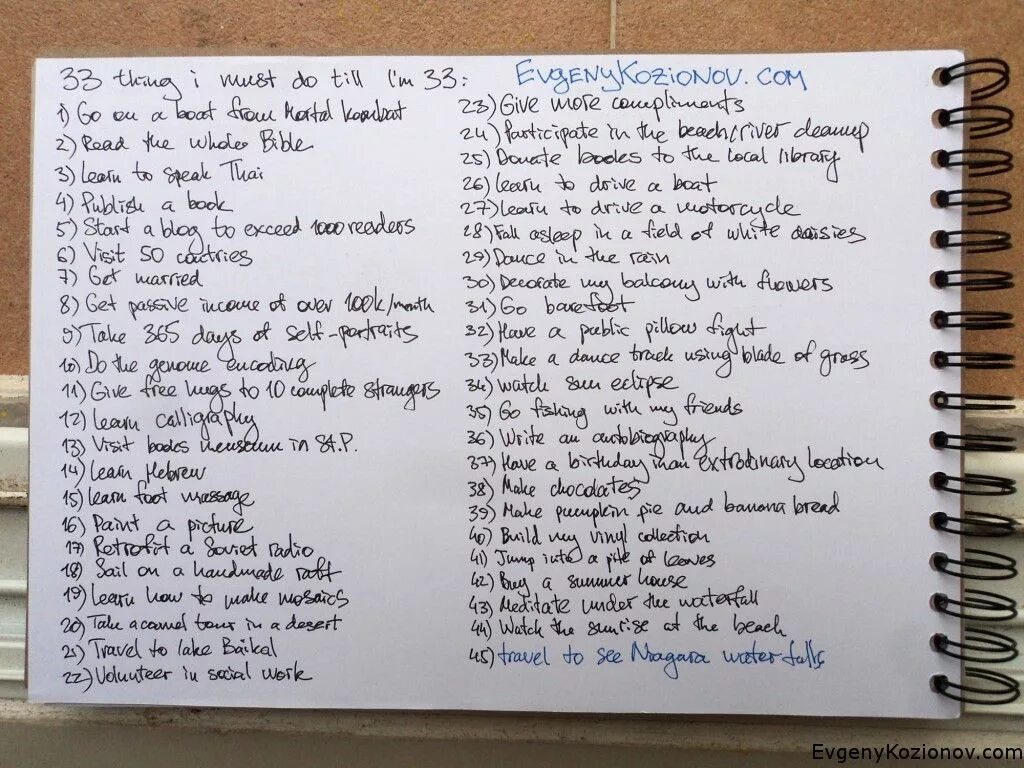 33 thing i must do till I'm 33:
EvgenyKozionov.com
1) Go on a boat from Mortal Kombat
2) Read the whole Bible
3) Learn to speak Thai
4) Publish a book
5) Start a blog to exceed 1000 readers
6) Visit 50 coutries
7) Get married
8) Get passive income of over 100k/month
9) Take 365 days of self-portraits
10) Do the genome encoding
11) Give free hugs to 10 complete strangers
12) Learn calligraphy
13) Visit books museum in St.P.
14) Learn Hebrew
15) Learn foot massage
16) Paint a picture
17) Retrofit a Soviet radio
18) Sail on a handmade raft
19) Learn how to make mosaics
20) Take a camel tour in a desert
21) Travel to lake Baikal
22) Volunteer in social work
23) Give more compliments
24) Participate in the beach/river cleanup
25) Donate books to the local library
26) Learn to drive a boat
27) Learn to drive a motorcycle
28) Fall asleep in a field of white daisies
29) Dance in the rain
30) Decorate my balcony with flowers
31) Go barefoot
32) Have a public pillow fight
33) Make a dance track using blade of grass
34) Watch sun eclipse
35) Go fishing with my friends
36) Write an autobiography
37) Have a birthday in an extrodinary location
38) Make chocolates
39) Make pumpkin pie and banana bread
40) Build my vinyl collection
41) Jump into a pile of leaves
42) Buy a summer house
43) Meditate under the waterfall
44) Watch the sunrise at the beach
45) travel to see Niagara water falls
EvgenyKozionov.com